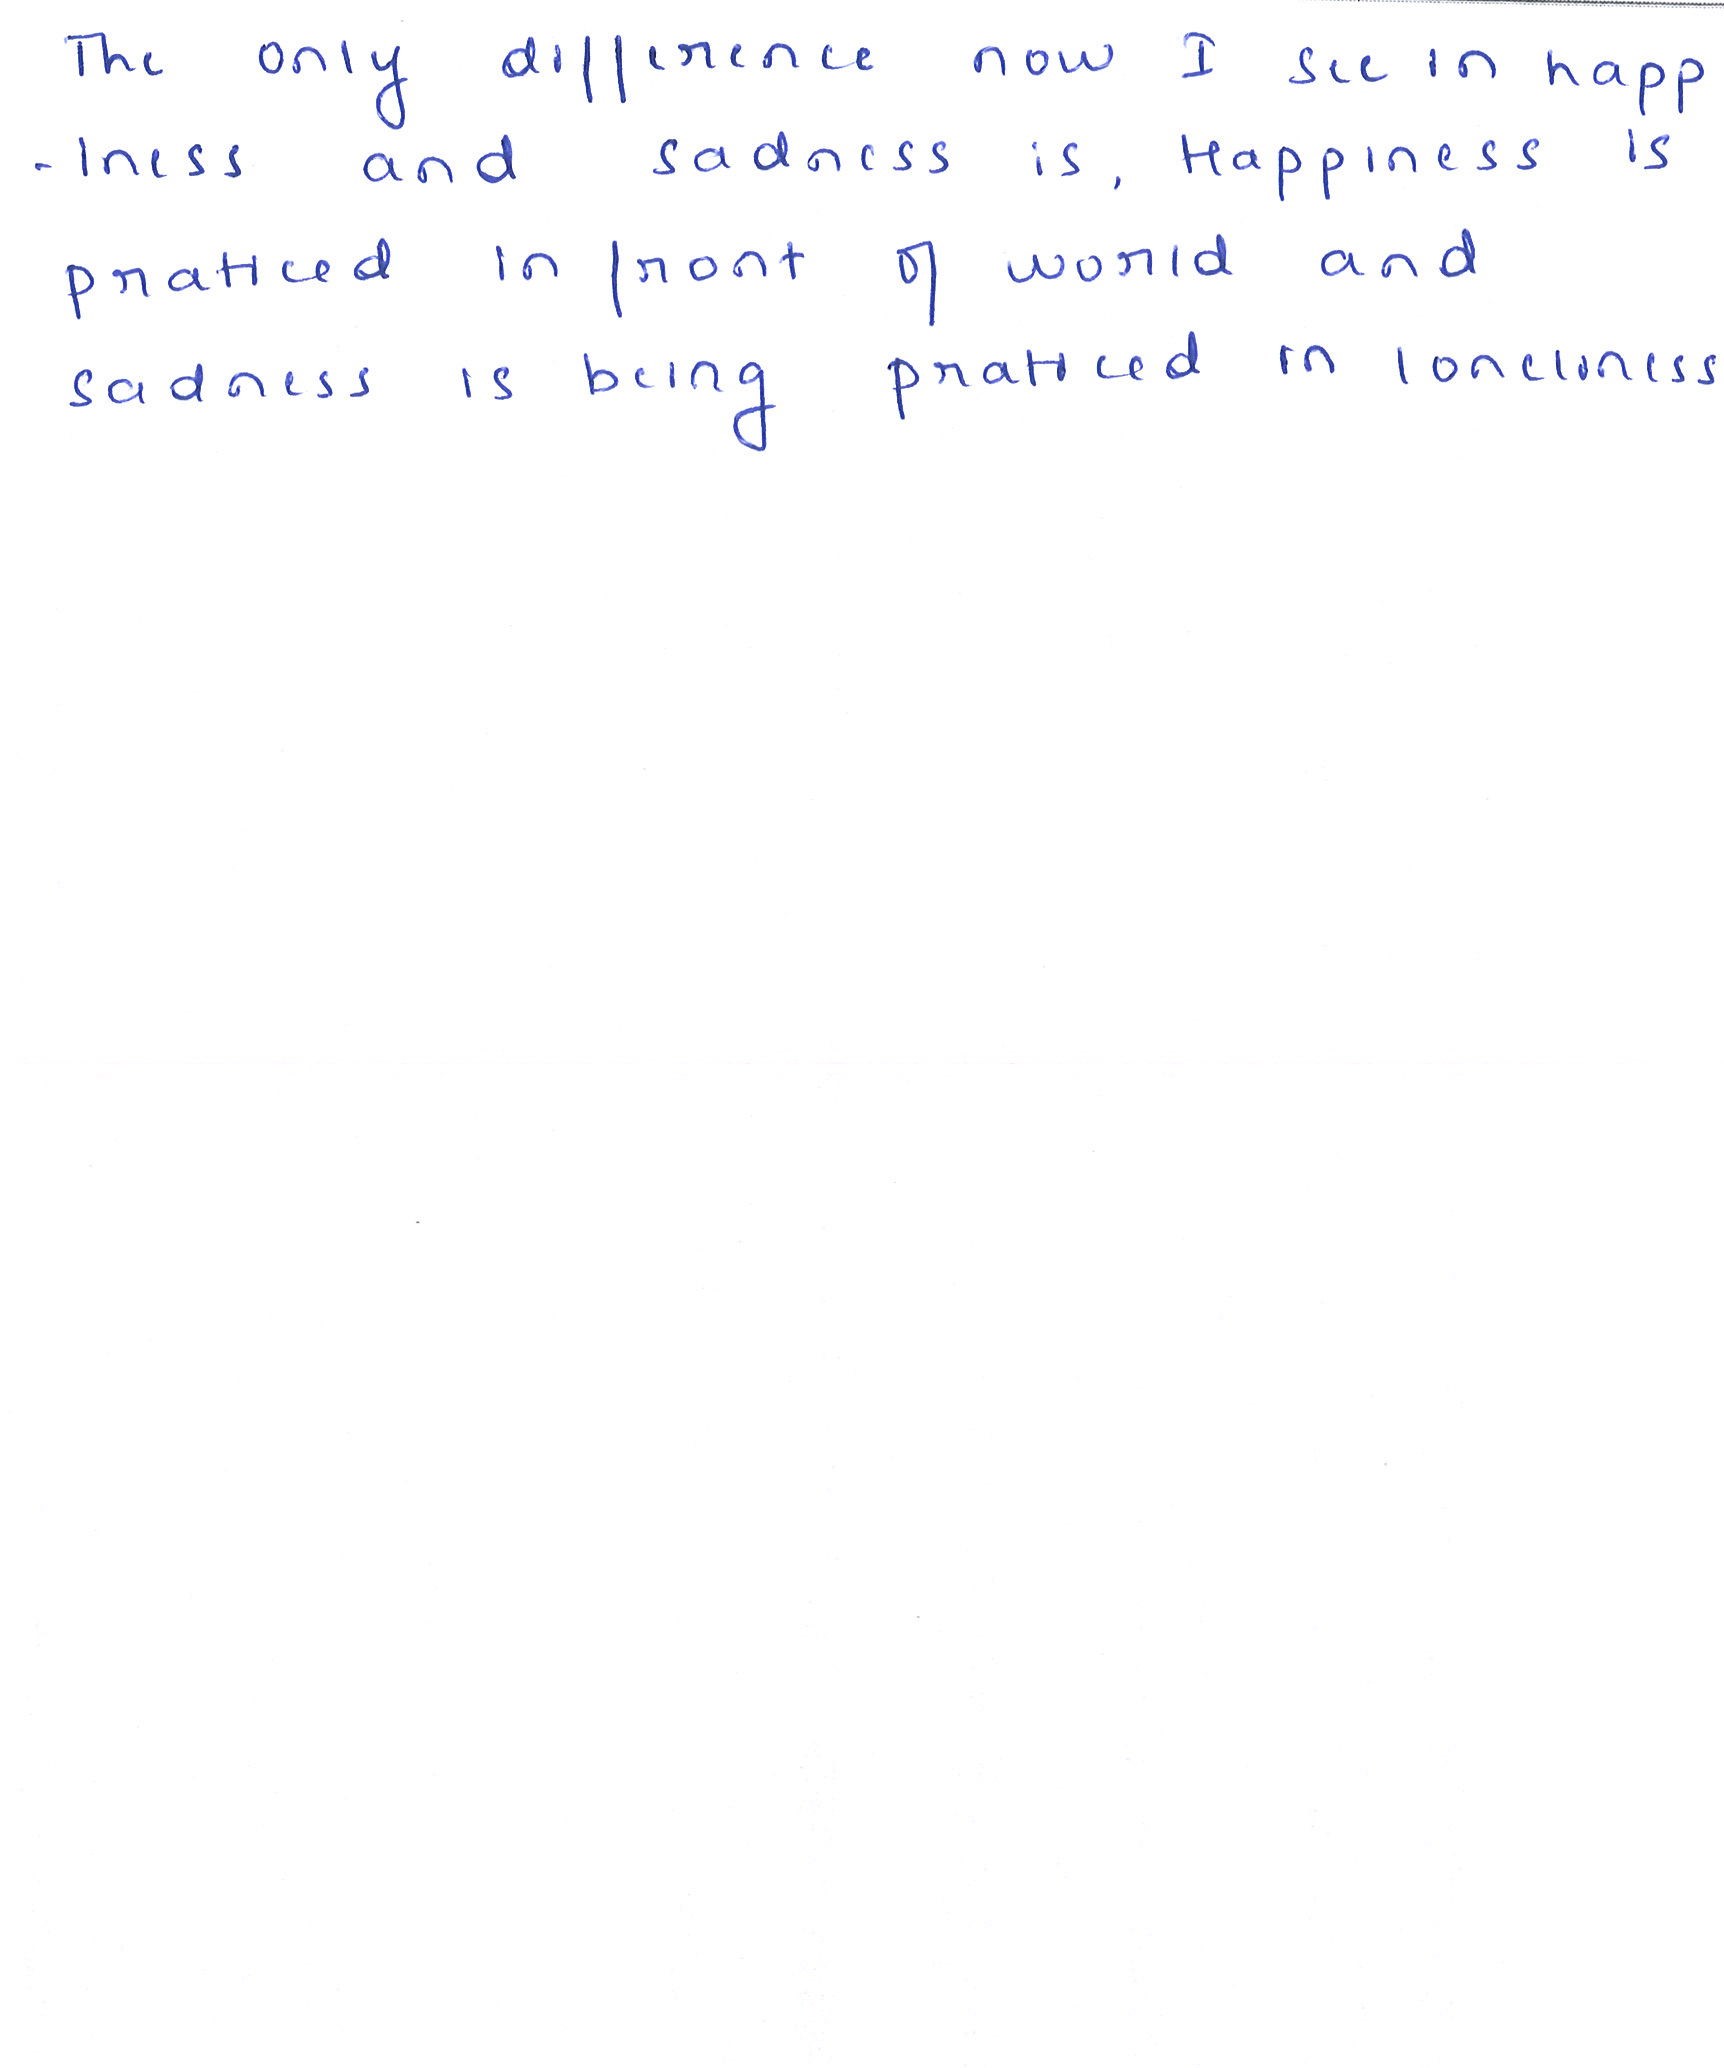 The only difference now I see in happ
-iness and sadness is, Happiness is
praticed in front of world and
sadness is being praticed in loneliness